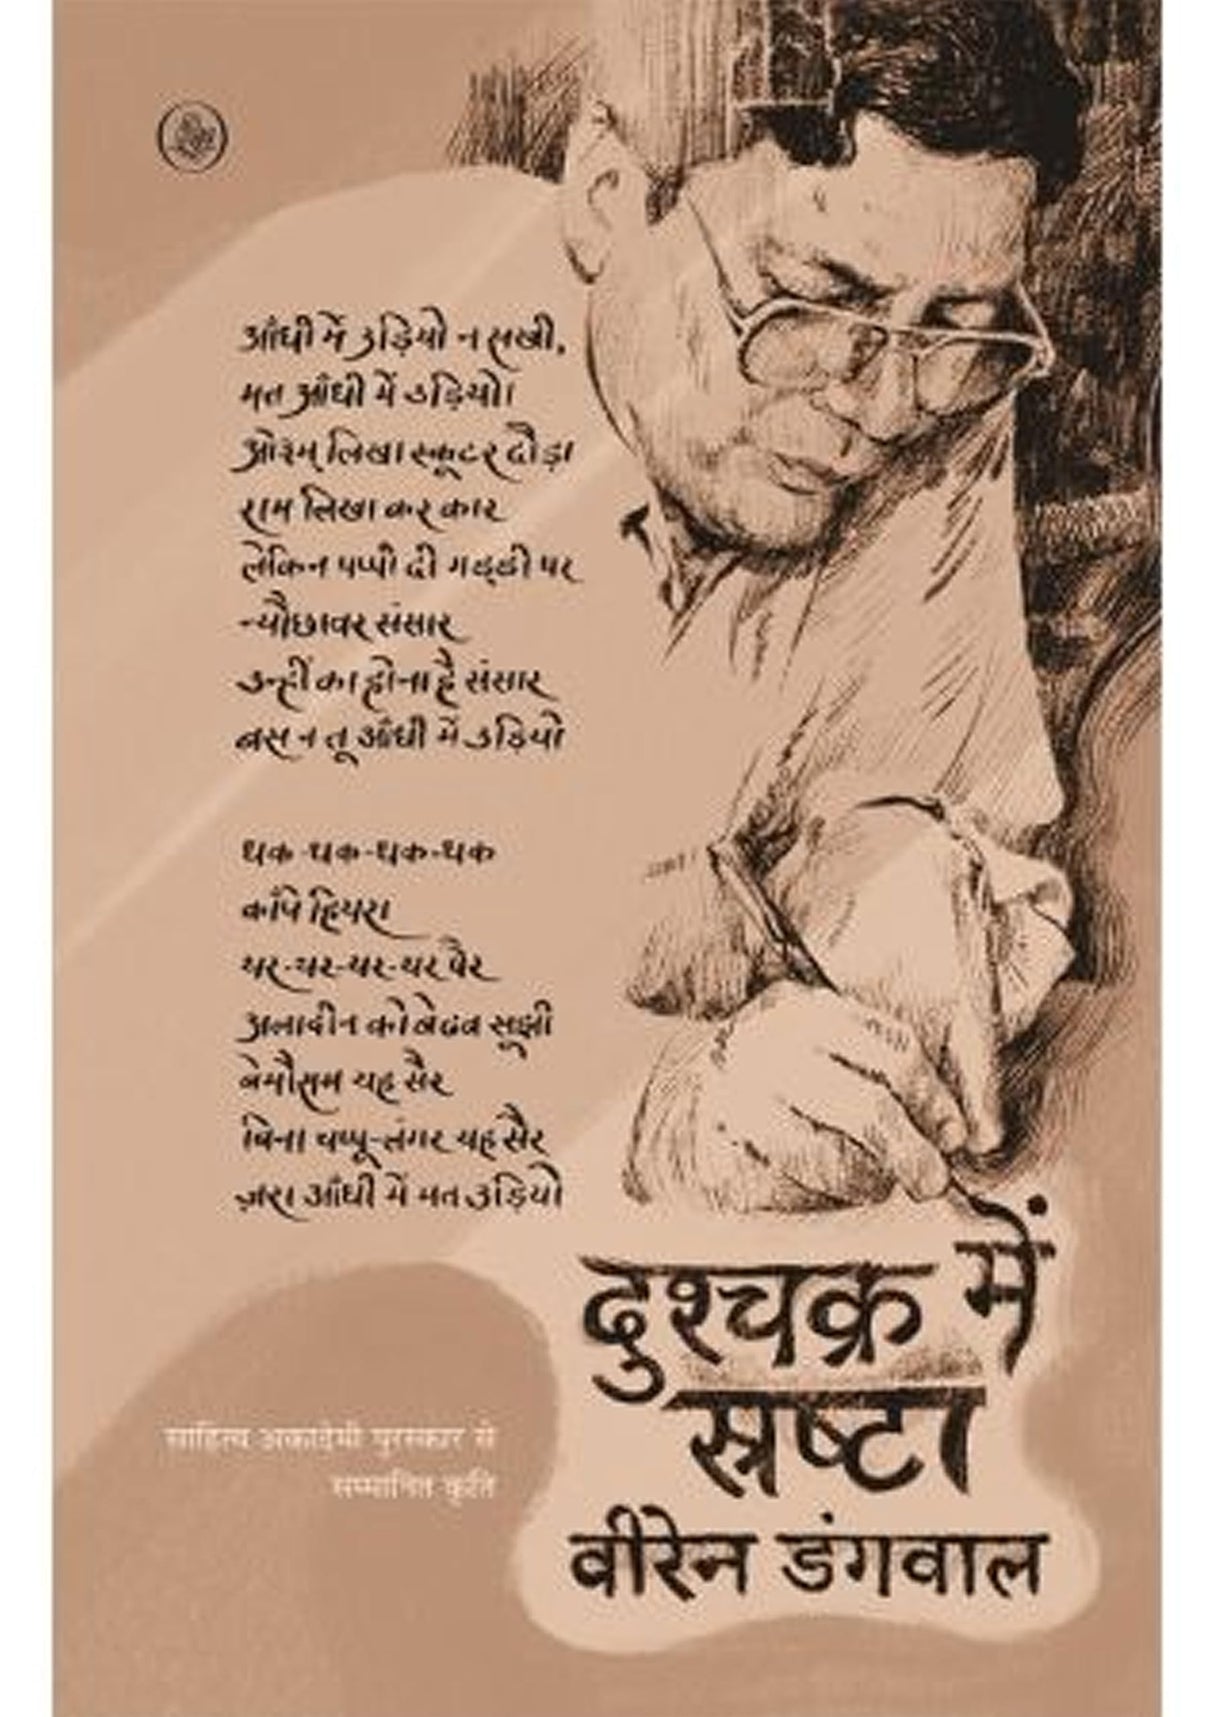 आँधी में उड़ियो न सखी,
मत आँधी में उड़ियो।
ओ३म् लिखा स्कूटर दौड़ा
राम लिखा कर कार
लेकिन पप्पी दी गड्डी पर
न्यौछावर संसार
उन्हीं का होना है संसार
बस न तू आँधी में उड़ियो
धक-धक-धक-धक
काँपे हियरा
थर-थर-थर-थर पैर
अलादीन को बेढब सूझी
बेमौसम यह सैर
बिना चप्पू-लंगर यह सैर
ज़रा आँधी में मत उड़ियो
दुश्चक्र में
स्रष्टा
साहित्य अकादेमी पुरस्कार से
सम्मानित कृति
वीरेन डंगवाल